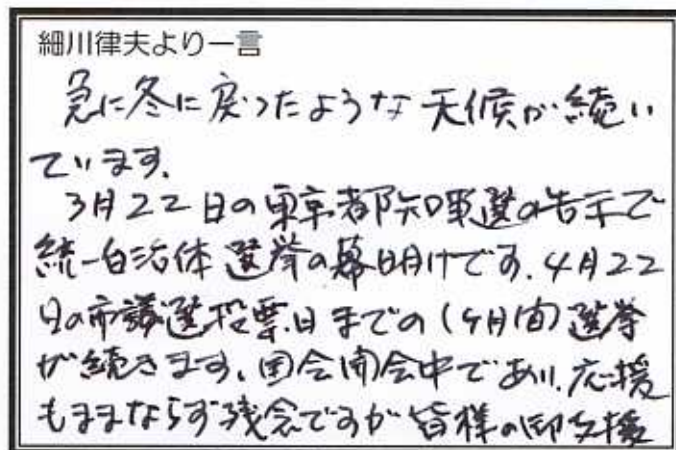 細川律夫より一言
急に冬に戻ったような天候が続い
ています。
3月22日の東京都知事選の告示で
統一自治体選挙の幕明けです。4月22
日の市議選投票日までの1ヶ月間選挙
が続きます。国会開会中であり、応援
もままならず残念ですが皆様の御支援